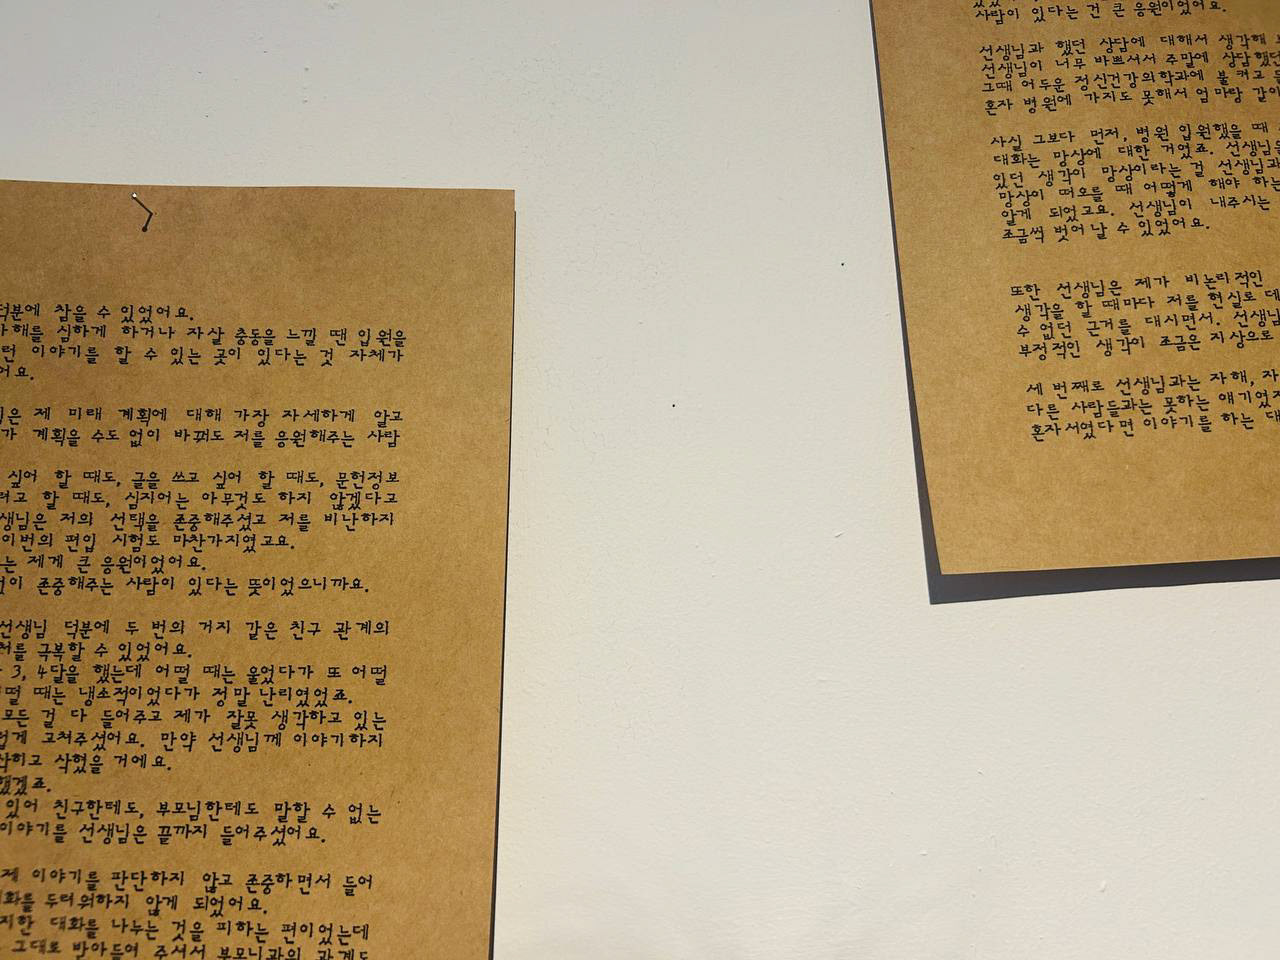 덕분에 참을 수 있었어요.
자해를 심하게 하거나 자살 충동을 느낄 땐 입원을
런 이야기를 할 수 있는 곳이 있다는 것 자체가
어요.
은 제 미래 계획에 대해 가장 자세하게 알고
가 계획을 수도 없이 바꿔도 저를 응원해주는 사람
싶어 할 때도, 글을 쓰고 싶어 할 때도, 문헌정보
려고 할 때도, 심지어는 아무것도 하지 않겠다고
생님은 저의 선택을 존중해주셨고 저를 비난하지
이번의 편입 시험도 마찬가지였고요.
는 제게 큰 응원이었어요.
없이 존중해주는 사람이 있다는 뜻이었으니까요.
선생님 덕분에 두 번의 거지 같은 친구 관계의
처를 극복할 수 있었어요.
3, 4달을 했는데 어떨 때는 울었다가 또 어떨
떨 때는 냉소적이었다가 정말 난리였었죠.
모든 걸 다 들어주고 제가 잘못 생각하고 있는
럽게 고쳐주셨어요. 만약 선생님께 이야기하지
삭히고 삭혔을 거에요.
했겠죠.
있어 친구한테도, 부모님한테도 말할 수 없는
이야기를 선생님은 끝까지 들어주셨어요.
제 이야기를 판단하지 않고 존중하면서 들어
대화를 두려워하지 않게 되었어요.
지한 대화를 나누는 것을 피하는 편이었는데
그대로 받아들여 주셔서 부모님과의 관계도
사람이 있다는 건 큰 응원이었어요.
선생님과 했던 상담에 대해서 생각해
선생님이 너무 바쁘셔서 주말에 상담했던
그때 어두운 정신건강의학과에 불 켜고
혼자 병원에 가지도 못해서 엄마랑 같이
사실 그보다 먼저, 병원 입원했을 때
대화는 망상에 대한 거였죠. 선생님을
있던 생각이 망상이라는 걸 선생님과
망상이 떠오를 때 어떻게 해야 하는
알게 되었고요. 선생님이 내주시는
조금씩 벗어날 수 있었어요.
또한 선생님은 제가 비논리적인
생각을 할 때마다 저를 현실로 데
수 없던 근거를 대시면서. 선생님
부정적인 생각이 조금은 지상으로
세 번째로 선생님과는 자해, 자
다른 사람들과는 못하는 얘기였지
혼자서였다면 이야기를 하는 대